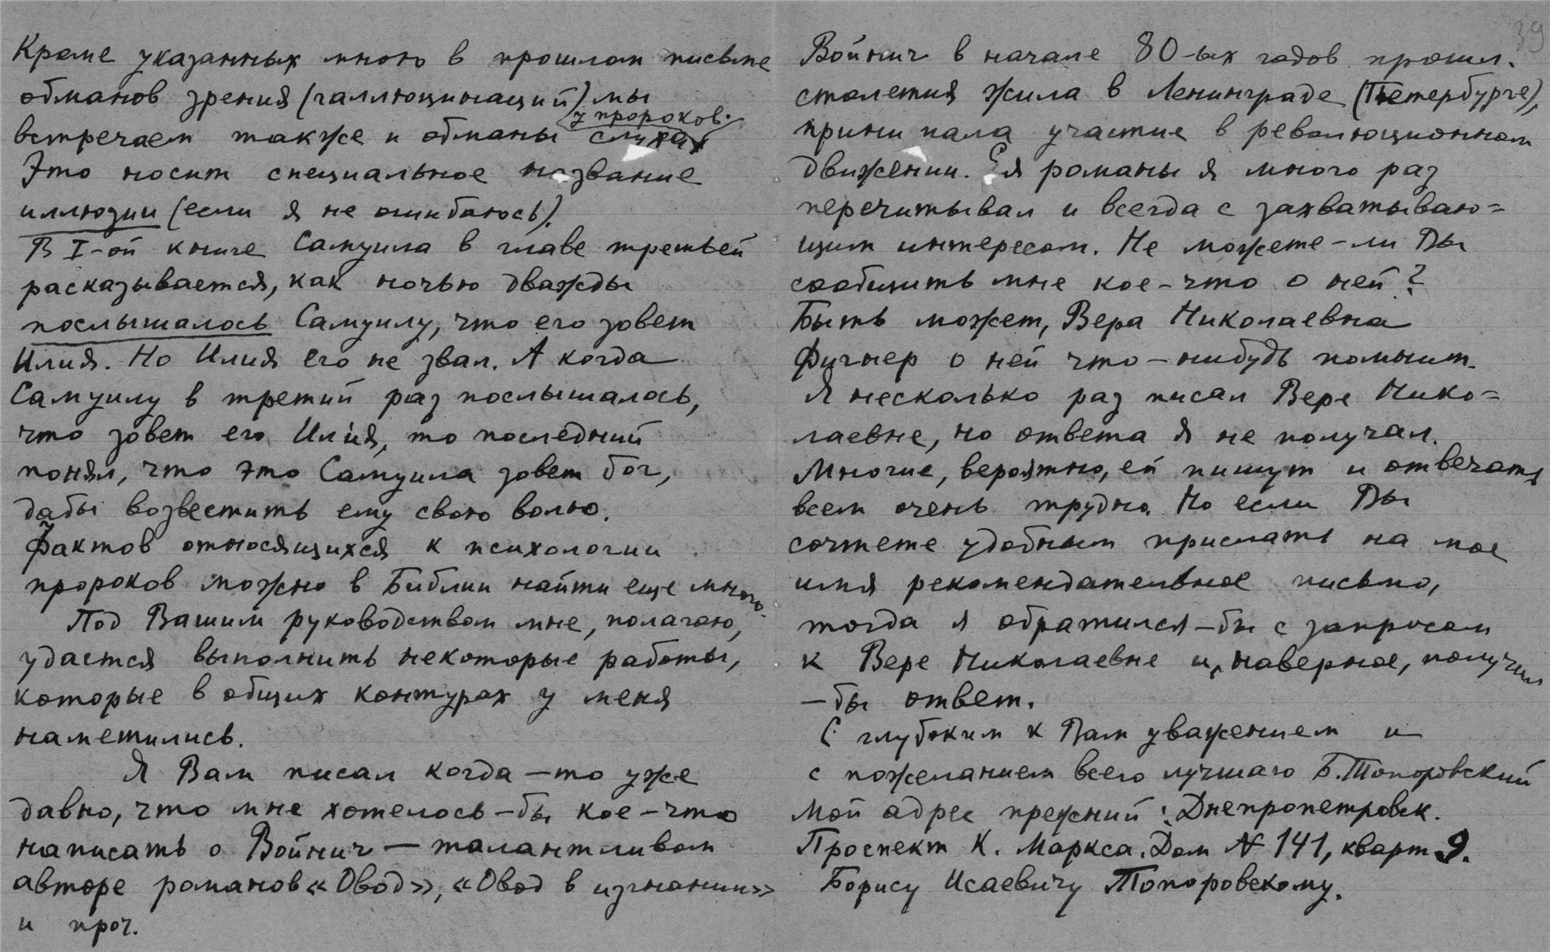 Кроме указанных мною в прошлом письме
обманов зрения (галлюцинаций) мы
у пророков.
встречаем также и обманы слуха
Это носит специальное название
иллюзии (если я не ошибаюсь).
В I-ой книге Самуила в главе третьей
рассказывается, как ночью дважды
послышалось Самуилу, что его зовет
Илия. Но Илия его не звал. А когда
Самуилу в третий раз послышалось,
что зовет его Илия, то последний
понял, что это Самуила зовет бог,
дабы возвестить ему свою волю.
Фактов относящихся к психологии
пророков можно в Библии найти еще много.
Под Вашим руководством мне, полагаю,
удастся выполнить некоторые работы,
которые в общих контурах у меня
наметились.
Я Вам писал когда-то уже
давно, что мне хотелось-бы кое-что
написать о Войнич — талантливом
авторе романов «Овод», «Овод в изгнании»
и проч.
39
Войнич в начале 80-ых годов прошл.
столетия жила в Ленинграде (Петербурге),
принимала участие в революционном
движении. Ея романы я много раз
перечитывал и всегда с захватываю=
щим интересом. Не можете-ли Вы
сообщить мне кое-что о ней?
Быть может, Вера Николаевна
Фигнер о ней что-нибудь помнит.
Я несколько раз писал Вере Нико=
лаевне, но ответа я не получал.
Многие, вероятно, ей пишут и отвечать
всем очень трудно. Но если Вы
сочтете удобным прислать на мое
имя рекомендательное письмо,
тогда я обратился-бы с запросом
к Вере Николаевне и, наверное, получил
-бы ответ.
С глубоким к Вам уважением и
с пожеланием всего лучшаго Б. Топоровский
Мой адрес прежний: Днепропетровск.
Проспект К. Маркса. Дом № 141, кварт 9.
Борису Исаевичу Топоровскому.